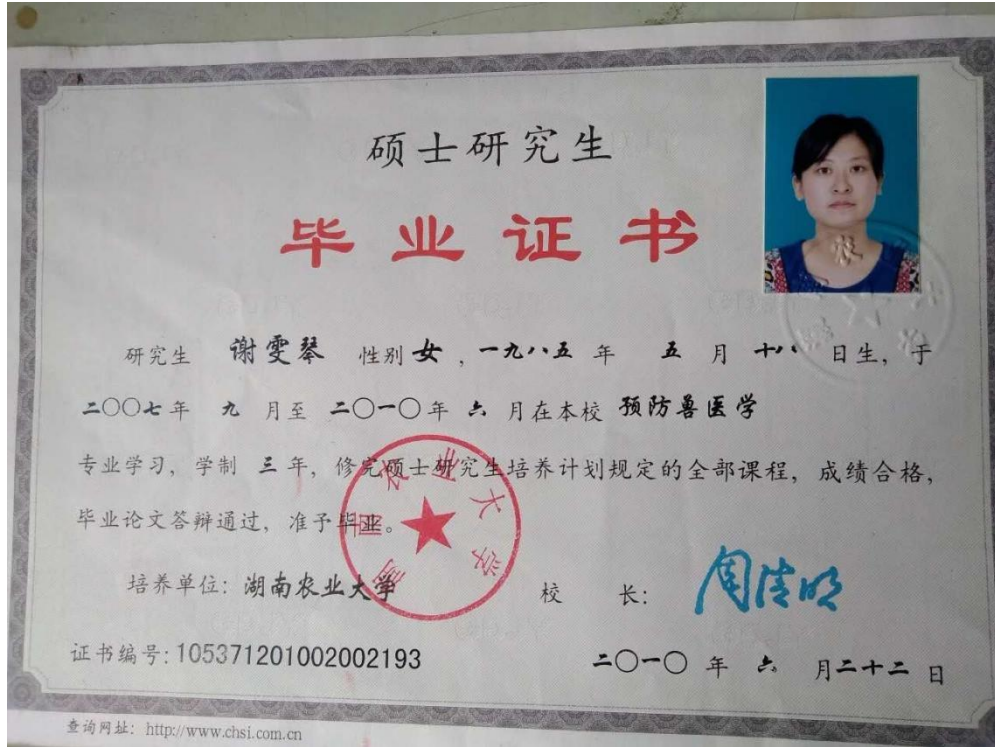 硕士研究生
毕业证书
研究生 谢雯琴 性别 女 , 一九八五 年 五 月 十八 日生, 于
二〇〇七年 九 月至 二〇一〇年 六 月在本校 预防兽医学
专业学习, 学制 三 年, 修完硕士研究生培养计划规定的全部课程, 成绩合格,
毕业论文答辩通过, 准予毕业。
湖南农业大学
培养单位: 湖南农业大学
校 长: 周清明
证书编号: 105371201002002193
二〇一〇 年 六 月二十二 日
查询网址: http://www.chsi.com.cn